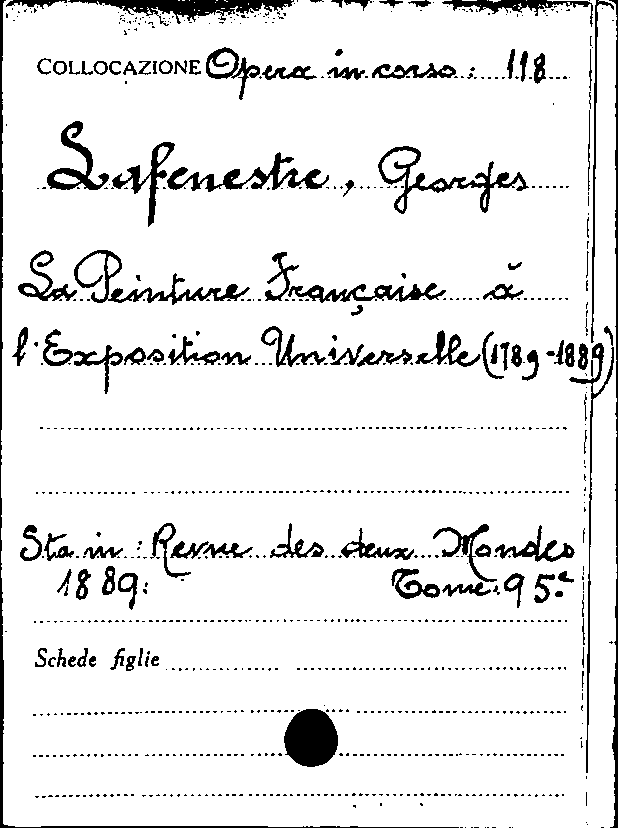 COLLOCAZIONE Opera in corso: 118
Lafenestre, Georges
La Peinture Française à
l'Exposition Universelle (1789-1889)
Sta in: Revue des deux Mondes
1889: Tome. 95.e
Schede figlie